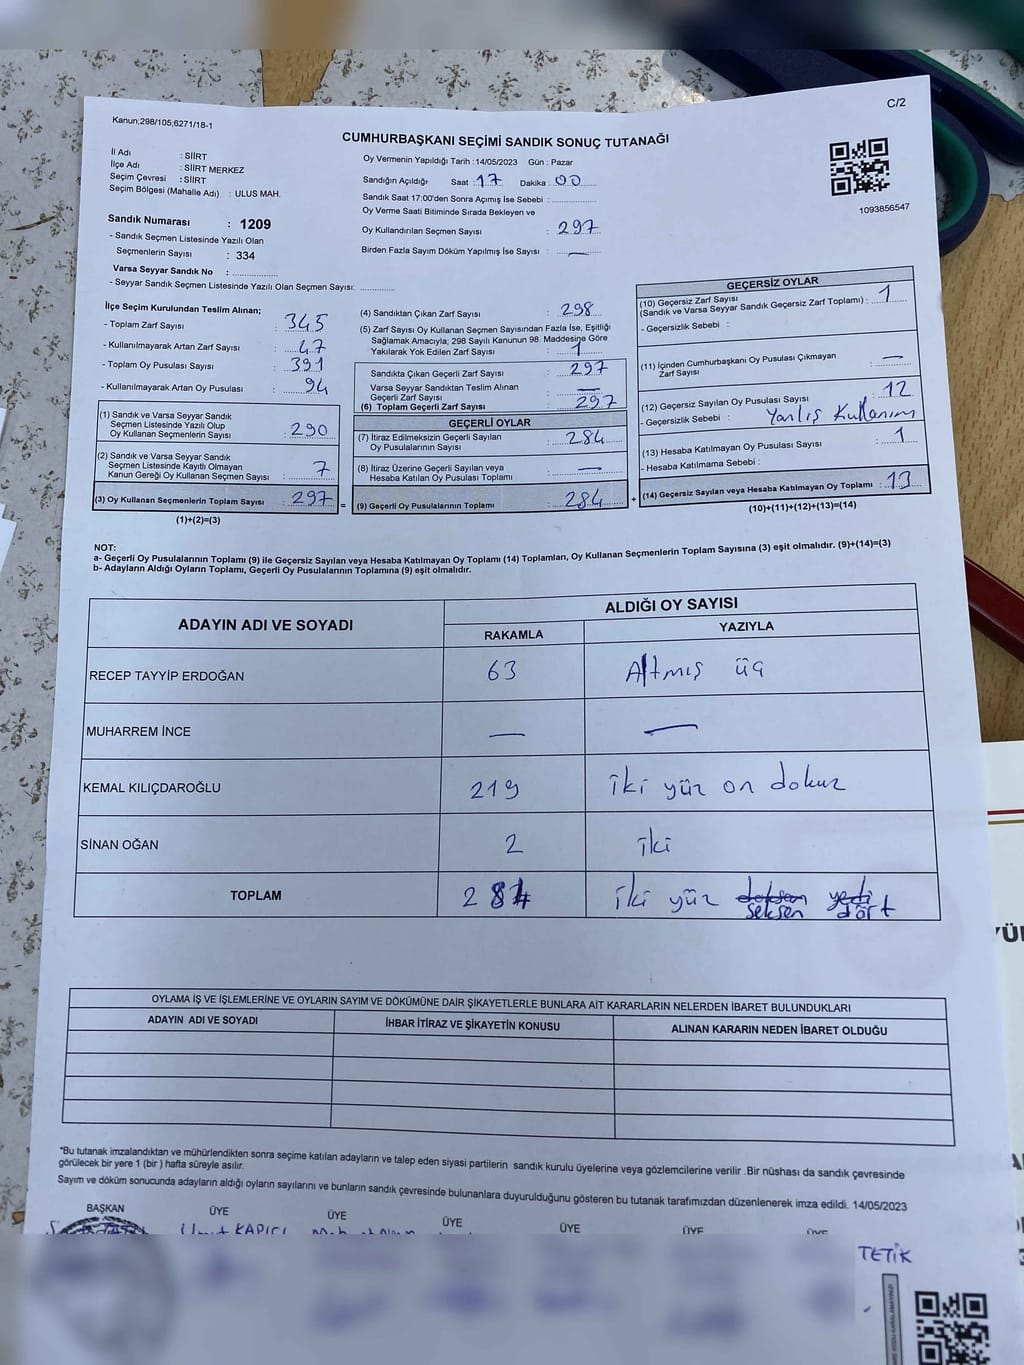 C/2
Kanun;298/105;6271/18-1
CUMHURBAŞKANI SEÇİMİ SANDIK SONUÇ TUTANAĞI
İl Adı : SİİRT
İlçe Adı : SİİRT MERKEZ
Seçim Çevresi : SİİRT
Seçim Bölgesi (Mahalle Adı) : ULUS MAH.
Oy Vermenin Yapıldığı Tarih : 14/05/2023 Gün : Pazar
Sandığın Açıldığı Saat : 17 Dakika : 00
Sandık Saat 17:00'den Sonra Açımış İse Sebebi :
Oy Verme Saati Bitiminde Sırada Bekleyen ve
Oy Kullandırılan Seçmen Sayısı : 297
Birden Fazla Sayım Döküm Yapılmış İse Sayısı : —
1093856547
Sandık Numarası : 1209
- Sandık Seçmen Listesinde Yazılı Olan
Seçmenlerin Sayısı : 334
Varsa Seyyar Sandık No :
- Seyyar Sandık Seçmen Listesinde Yazılı Olan Seçmen Sayısı:
İlçe Seçim Kurulundan Teslim Alınan;
- Toplam Zarf Sayısı : 345
- Kullanılmayarak Artan Zarf Sayısı : 47
- Toplam Oy Pusulası Sayısı : 391
- Kullanılmayarak Artan Oy Pusulası : 94
(1) Sandık ve Varsa Seyyar Sandık
Seçmen Listesinde Yazılı Olup
Oy Kullanan Seçmenlerin Sayısı : 290
(2) Sandık ve Varsa Seyyar Sandık
Seçmen Listesinde Kayıtlı Olmayan
Kanun Gereği Oy Kullanan Seçmen Sayısı : 7
(3) Oy Kullanan Seçmenlerin Toplam Sayısı : 297
(1)+(2)=(3)
(4) Sandıktan Çıkan Zarf Sayısı : 298
(5) Zarf Sayısı Oy Kullanan Seçmen Sayısından Fazla İse, Eşitliği
Sağlamak Amacıyla; 298 Sayılı Kanunun 98. Maddesine Göre
Yakılarak Yok Edilen Zarf Sayısı : 1
Sandıkta Çıkan Geçerli Zarf Sayısı : 297
Varsa Seyyar Sandıktan Teslim Alınan
Geçerli Zarf Sayısı : —
(6) Toplam Geçerli Zarf Sayısı : 297
GEÇERLİ OYLAR
(7) İtiraz Edilmeksizin Geçerli Sayılan
Oy Pusulalarının Sayısı : 284
(8) İtiraz Üzerine Geçerli Sayılan veya
Hesaba Katılan Oy Pusulası Toplamı : —
= (9) Geçerli Oy Pusulalarının Toplamı : 284 +
GEÇERSİZ OYLAR
(10) Geçersiz Zarf Sayısı
(Sandık ve Varsa Seyyar Sandık Geçersiz Zarf Toplamı) : 1
- Geçersizlik Sebebi :
(11) İçinden Cumhurbaşkanı Oy Pusulası Çıkmayan
Zarf Sayısı : —
(12) Geçersiz Sayılan Oy Pusulası Sayısı : 12
- Geçersizlik Sebebi : Yanlış Kullanım
(13) Hesaba Katılmayan Oy Pusulası Sayısı : 1
- Hesaba Katılmama Sebebi :
(14) Geçersiz Sayılan veya Hesaba Katılmayan Oy Toplamı : 13
(10)+(11)+(12)+(13)=(14)
NOT:
a- Geçerli Oy Pusulalarının Toplamı (9) ile Geçersiz Sayılan veya Hesaba Katılmayan Oy Toplamı (14) Toplamları, Oy Kullanan Seçmenlerin Toplam Sayısına (3) eşit olmalıdır. (9)+(14)=(3)
b- Adayların Aldığı Oyların Toplamı, Geçerli Oy Pusulalarının Toplamına (9) eşit olmalıdır.
ADAYIN ADI VE SOYADI ALDIĞI OY SAYISI
RAKAMLA YAZIYLA
RECEP TAYYİP ERDOĞAN 63 Altmış üç
MUHARREM İNCE — —
KEMAL KILIÇDAROĞLU 219 iki yüz on dokuz
SİNAN OĞAN 2 iki
TOPLAM 284 iki yüz doksan yedi
seksen dört
OYLAMA İŞ VE İŞLEMLERİNE VE OYLARIN SAYIM VE DÖKÜMÜNE DAİR ŞİKAYETLERLE BUNLARA AİT KARARLARIN NELERDEN İBARET BULUNDUKLARI
ADAYIN ADI VE SOYADI İHBAR İTİRAZ VE ŞİKAYETİN KONUSU ALINAN KARARIN NEDEN İBARET OLDUĞU
*Bu tutanak imzalandıktan ve mühürlendikten sonra seçime katılan adayların ve talep eden siyasi partilerin sandık kurulu üyelerine veya gözlemcilerine verilir .Bir nüshası da sandık çevresinde
görülecek bir yere 1 (bir ) hafta süreyle asılır.
Sayım ve döküm sonucunda adayların aldığı oyların sayılarını ve bunların sandık çevresinde bulunanlara duyurulduğunu gösteren bu tutanak tarafımızdan düzenlenerek imza edildi. 14/05/2023
BAŞKAN ÜYE ÜYE ÜYE ÜYE ÜYE ÜYE
KAPICI
TETİK